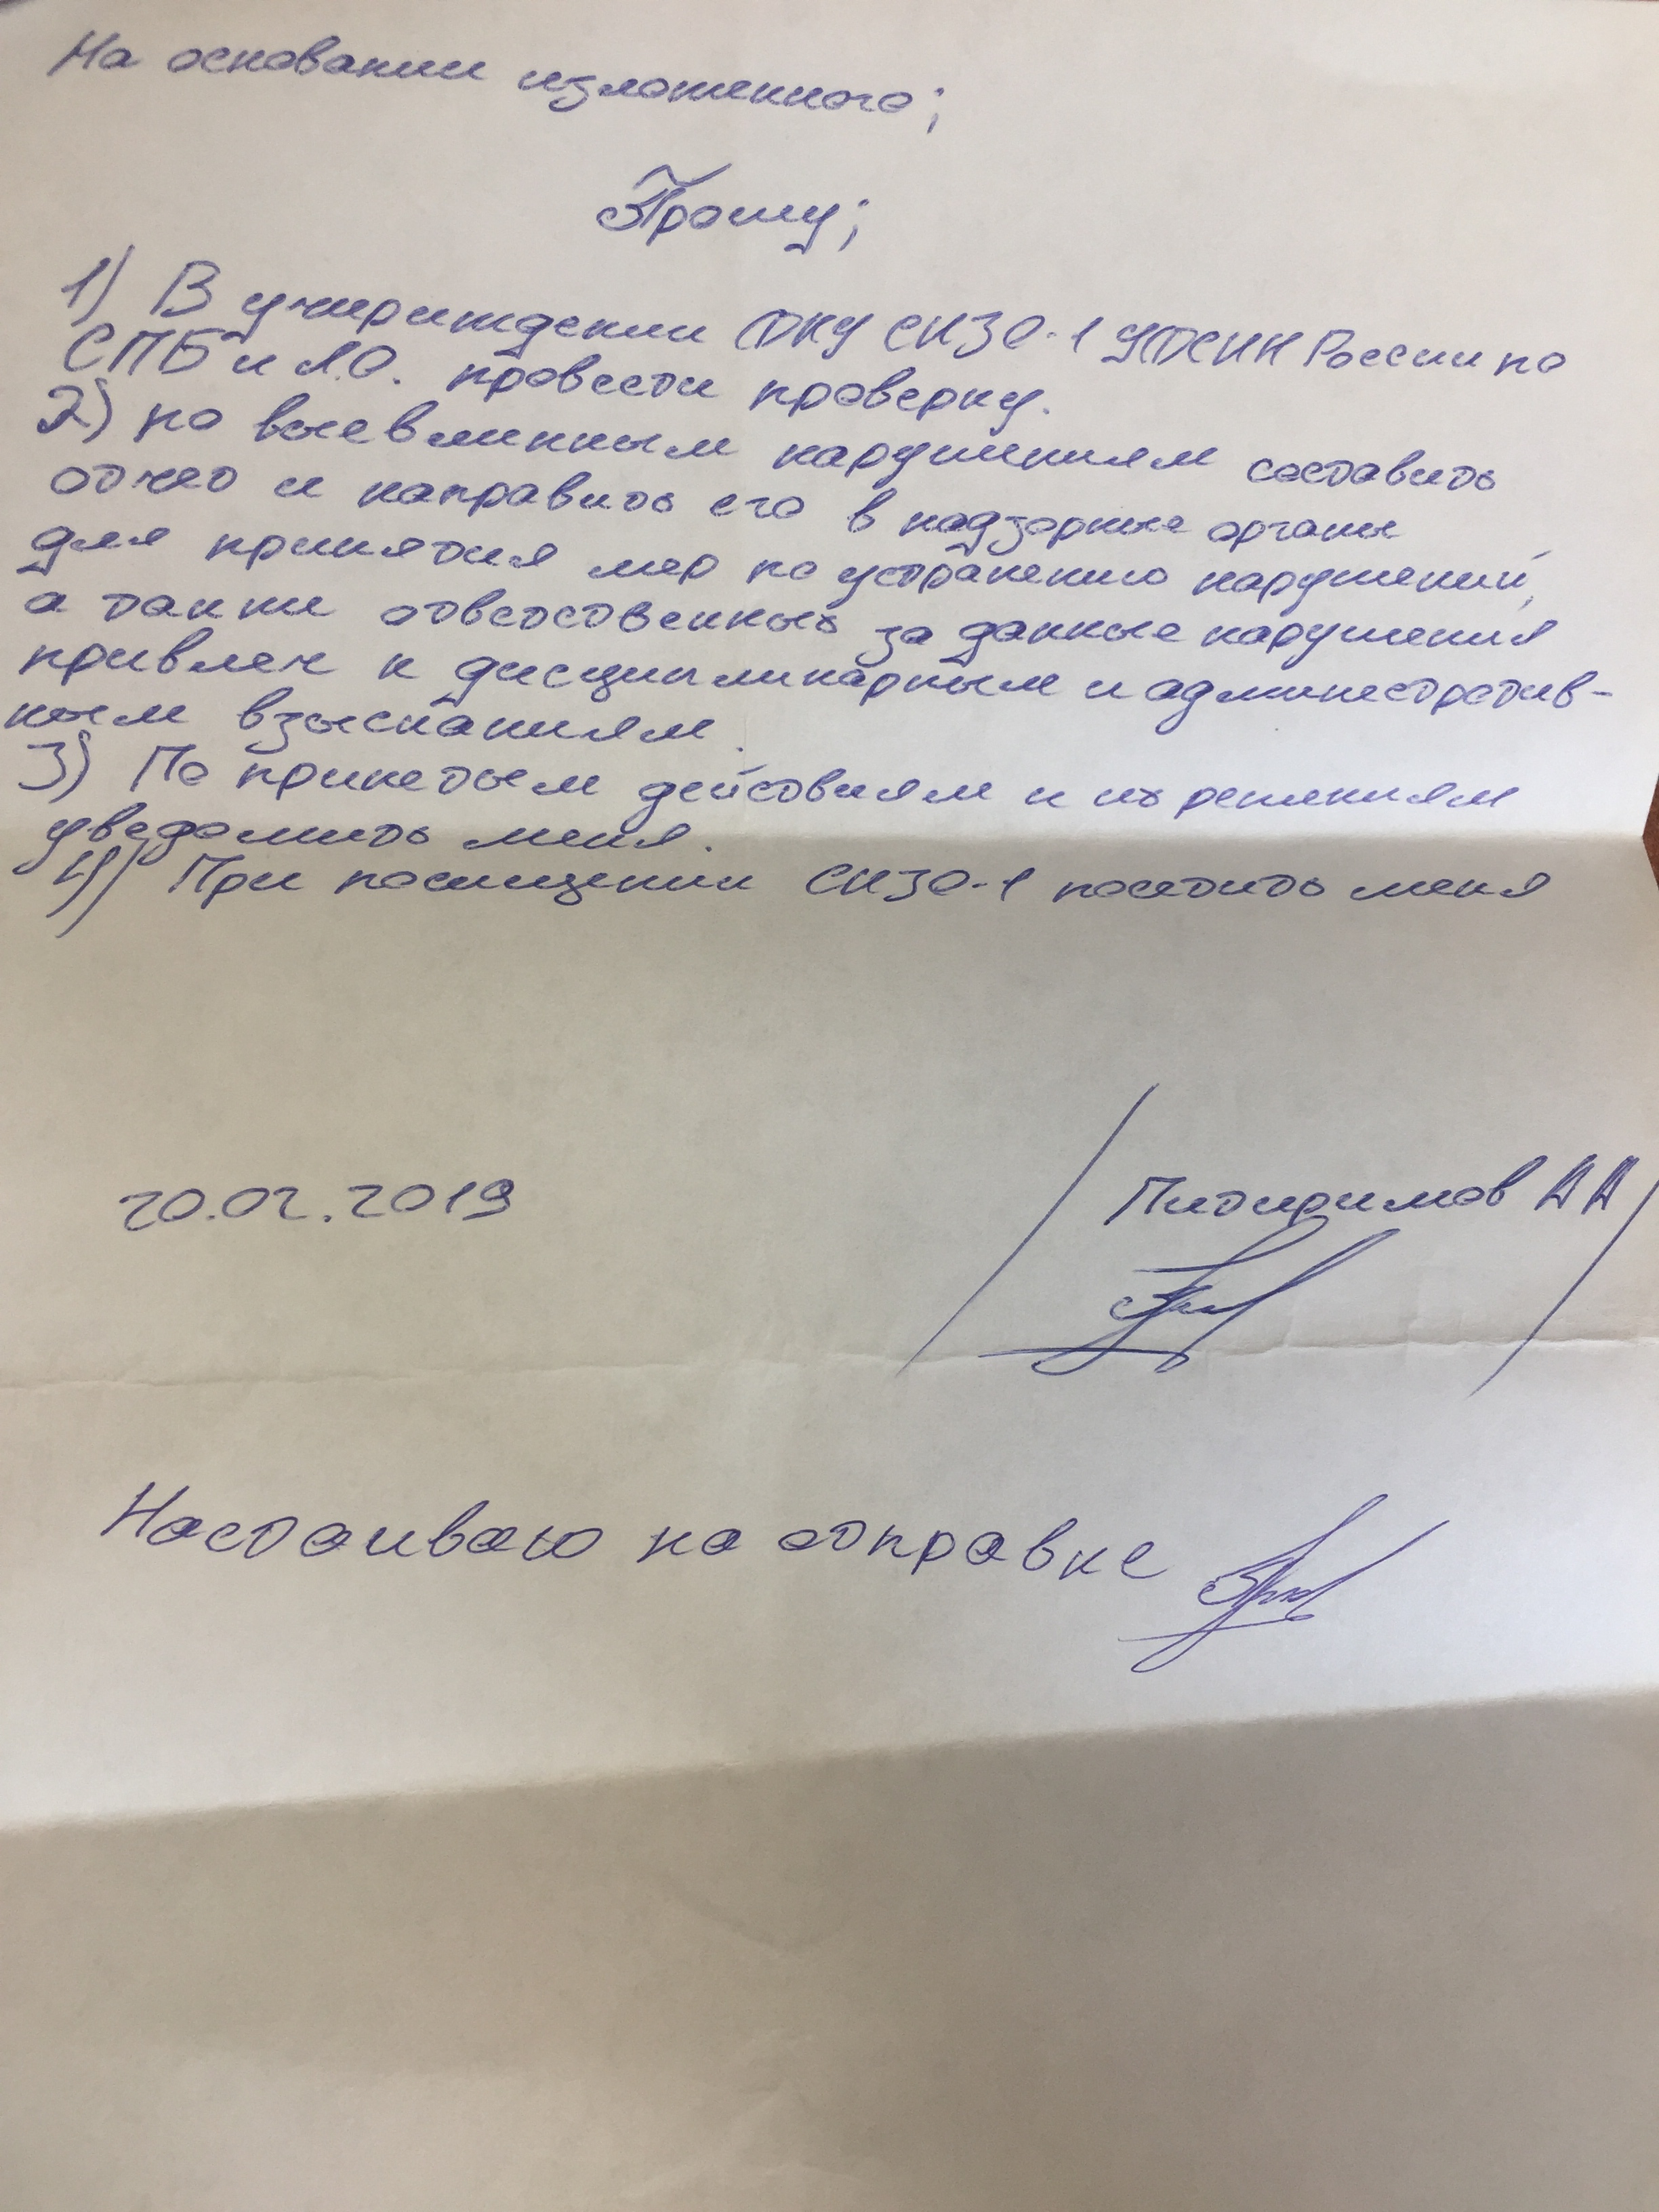 На основании изложенного;
Прошу;
1) В учириждении ФКУ СИЗО-1 УФСИН России по
СПБ и Л.О. провести проверку.
2) по выевлинным нарушениям составить
отчёт и направить его в надзорные органы
для принятия мер по устранению нарушений,
а также ответственных за данные нарушения
привлеч к дисциплинарным и административ-
ным взысканиям.
3) По принетым действиям и их решениям
уведомить меня.
4) При посищении СИЗО-1 посетить меня
20.02.2019
Питиримов АА
Настаиваю на отправке